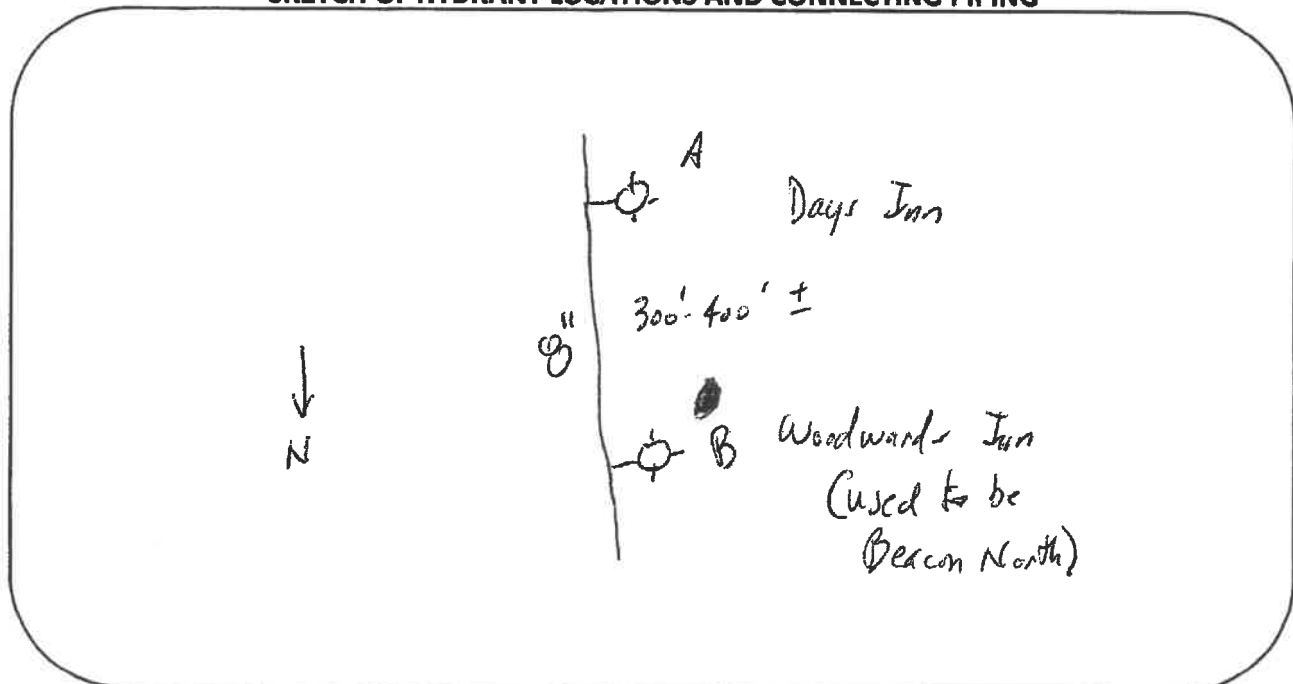 SKETCH OF HYDRANT LOCATIONS AND CONNECTING PIPING
A
Days Inn
300'-400' ±
8"
N
B
Woodwards Inn
(used to be
Beacon North)